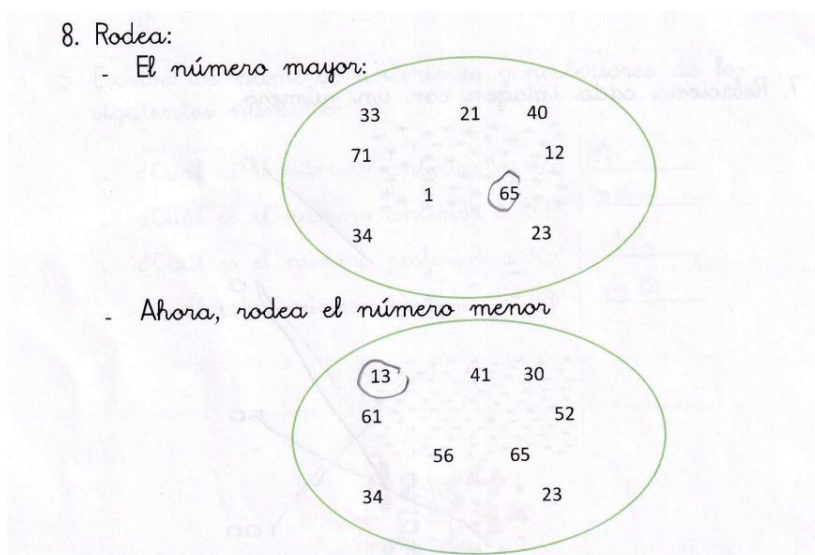 8. Rodea:
- El número mayor:
33 21 40
71 12
1 65
34 23
- Ahora, rodea el número menor
13 41 30
61 52
56 65
34 23